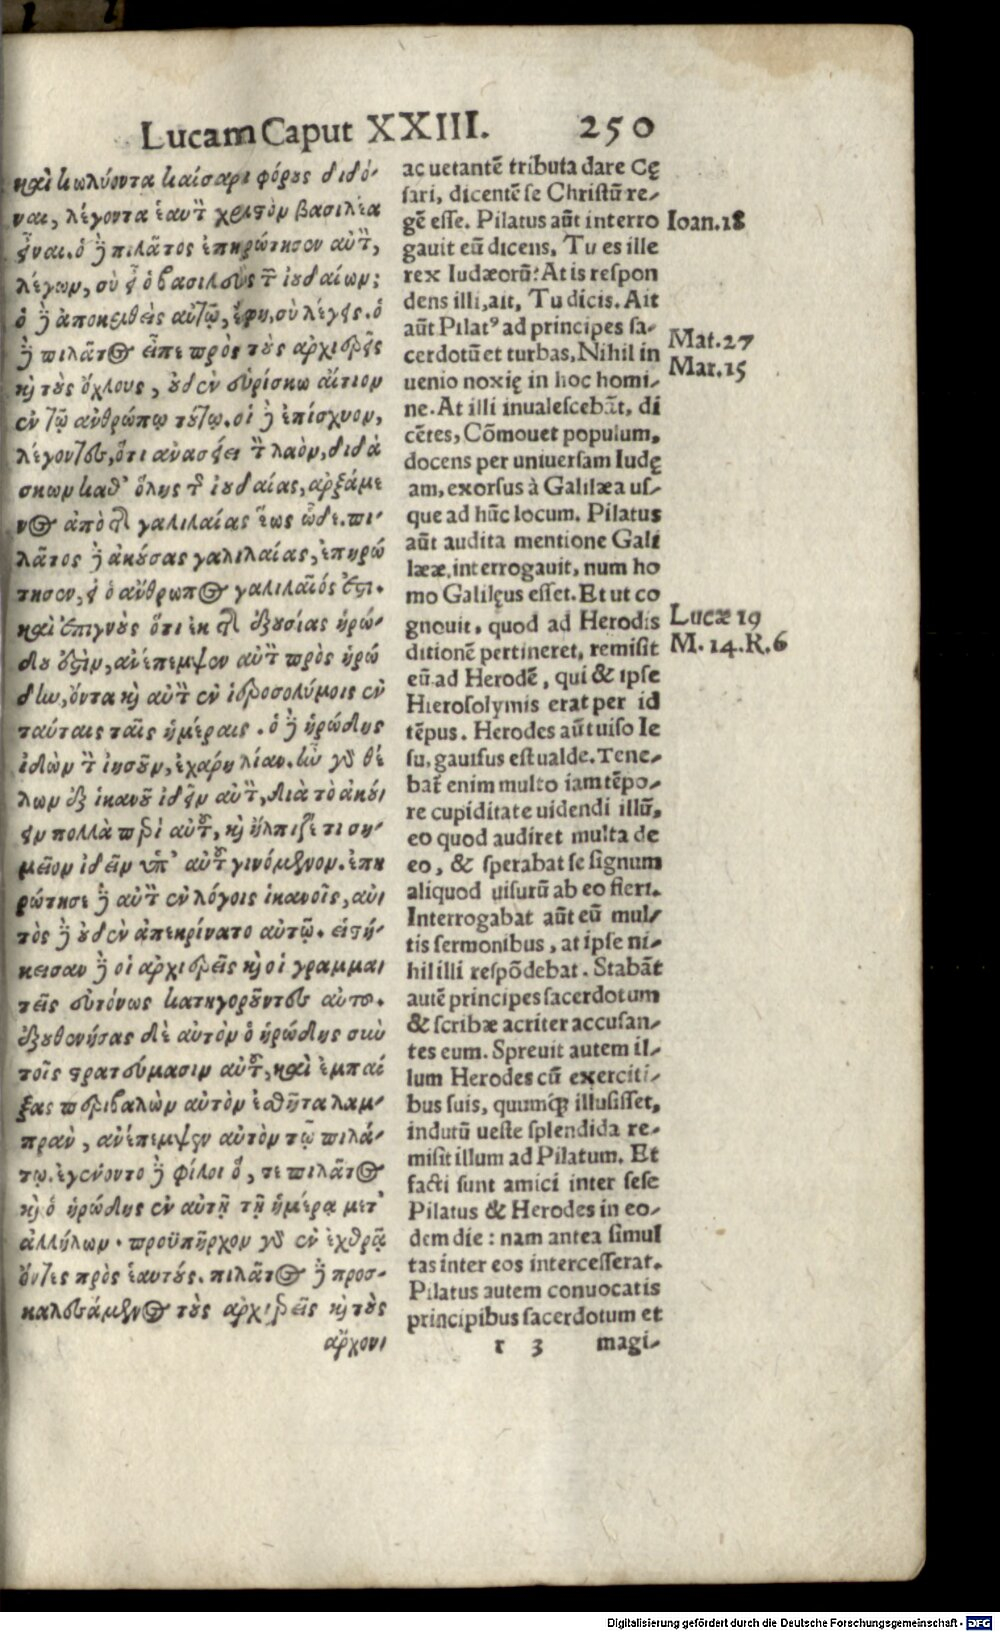 Lucam Caput XXIII. 250
καὶ κωλύοντα καίσαρι φόρους διδό-
ναι, λέγοντα ἑαυτὸν χριστὸμ βασιλέα
εἶναι. ὁ δὲ πιλᾶτος ἐπηρώτησεν αὐτὸν,
λέγωμ, σὺ εἶ ὁ βασιλεὺς τῶν ἰουδαίωμ;
ὁ δὲ ἀποκριθεὶς αὐτῷ, ἔφη, σὺ λέγεις. ὁ
δὲ πιλᾶτος εἶπε πρὸς τοὺς ἀρχιερεῖς
καὶ τοὺς ὄχλους, οὐδὲν εὑρίσκω αἴτιομ
ἐν τῷ ἀνθρώπῳ τούτῳ. οἱ δὲ ἐπίσχυομ,
λέγοντες, ὅτι ἀνασείει τὸν λαὸμ, διδά
σκωμ καθ' ὅλης τῆς ἰουδαίας, ἀρξάμε
νος ἀπὸ τῆς γαλιλαίας ἕως ὧδε. πι-
λᾶτος δὲ ἀκούσας γαλιλαίας, ἐπηρώ
τησεν, εἰ ὁ ἄνθρωπος γαλιλαῖός ἐστι.
καὶ ἐπιγνοὺς ὅτι ἐκ τῆς ἐξουσίας ἡρώ-
δου ἐστὶμ, ἀνέπεμψεν αὐτὸν πρὸς ἡρώ
δην, ὄντα καὶ αὐτὸν ἐν ἱεροσολύμοις ἐν
ταύταις ταῖς ἡμέραις. ὁ δὲ ἡρώδης
ἰδὼμ τὸν ἰησοῦμ, ἐχάρη λίαν. ἦν γὰρ θέ
λωμ ἐξ ἱκανοῦ ἰδεῖμ αὐτὸν, διὰ τὸ ἀκού-
ειμ πολλὰ περὶ αὐτοῦ, καὶ ἤλπιζέ τι ση-
μεῖομ ἰδεῖμ ὑπ' αὐτοῦ γινόμενομ. ἐπη
ρώτησε δὲ αὐτὸν ἐν λόγοις ἱκανοῖς, αὐ-
τὸς δὲ οὐδὲν ἀπεκρίνατο αὐτῷ. εἱστή-
κεισαν δὲ οἱ ἀρχιερεῖς καὶ οἱ γραμμα-
τεῖς εὐτόνως κατηγοροῦντες αὐτοῦ.
ἐξουθενήσας δὲ αὐτὸμ ὁ ἡρώδης σὺν
τοῖς στρατεύμασιμ αὐτοῦ, καὶ ἐμπαί
ξας περιβαλὼμ αὐτὸμ ἐσθῆτα λαμ-
πρὰν, ἀνέπεμψεν αὐτὸμ τῷ πιλά-
τῳ. ἐγένοντο δὲ φίλοι ὅ, τε πιλᾶτος
καὶ ὁ ἡρώδης ἐν αὐτῇ τῇ ἡμέρᾳ μετ'
ἀλλήλωμ. προϋπῆρχομ γὰρ ἐν ἔχθρᾳ
ὄντες πρὸς ἑαυτούς. πιλᾶτος δὲ προσ-
καλεσάμενος τοὺς ἀρχιερεῖς καὶ τοὺς
ἄρχον-
ac uetantē tributa dare Cę
sari, dicentē se Christū re-
gē esse. Pilatus aūt interro
gauit eū dicens, Tu es ille
rex Iudæorū? At is respon
dens illi, ait, Tu dicis. Ait
aūt Pilatꝰ ad principes sa-
cerdotū et turbas, Nihil in
uenio noxię in hoc homi-
ne. At illi inualescebāt, di
cētes, Cōmouet populum,
docens per uniuersam Iudę
am, exorsus à Galilæa us-
que ad hūc locum. Pilatus
aūt audita mentione Gali
lææ, interrogauit, num ho
mo Galilęus esset. Et ut co
gnouit, quod ad Herodis
ditionē pertineret, remisit
eū ad Herodē, qui & ipse
Hierosolymis erat per id
tēpus. Herodes aūt uiso Ie
su, gauisus est ualde. Tene-
bat̄ enim multo iam tēpo-
re cupiditate uidendi illū,
eo quod audiret multa de
eo, & sperabat se signum
aliquod uisurū ab eo fieri.
Interrogabat aūt eū mul-
tis sermonibus, at ipse ni-
hil illi respōdebat. Stabāt
autē principes sacerdotum
& scribæ acriter accusan-
tes eum. Spreuit autem il-
lum Herodes cū exerciti-
bus suis, quumq̃ illusisset,
indutū ueste splendida re-
misit illum ad Pilatum. Et
facti sunt amici inter sese
Pilatus & Herodes in eo-
dem die: nam antea simul
tas inter eos intercesserat.
Pilatus autem conuocatis
principibus sacerdotum et
r 3 magi-
Ioan.18
Mat.27
Mar.15
Lucæ 19
M. 14. R. 6
Digitalisierung gefördert durch die Deutsche Forschungsgemeinschaft - DFG